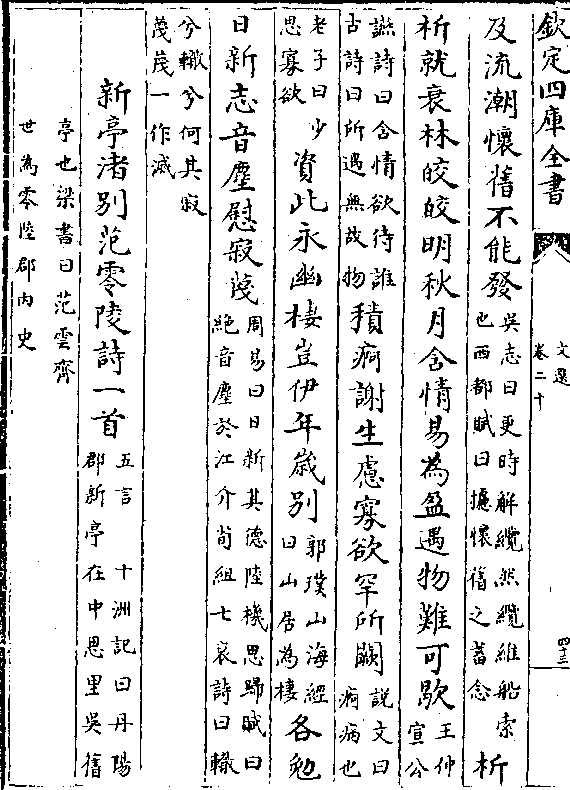 欽定四庫全書
文選
卷二十
四十三
及流潮懷舊不能發
吳志曰更時解纜然纜維船索
也西都賦曰攄懷舊之蓄念
析
析就衰林皎皎明秋月含情易為盈遇物難可歇
王仲
宣公
讌詩曰含情欲待誰
古詩曰所遇無故物
積痾謝生慮寡欲罕所闕
說文曰
痾病也
老子曰少
思寡欲
資此永幽棲豈伊年歲別
郭璞山海經
曰山居為棲
各勉
日新志音塵慰寂蔑
周易曰日新其德陸機思歸賦曰
絶音塵於江介荀組七哀詩曰轍
兮轍兮何其寂
蔑蔑一作滅
新亭渚別范零陵詩一首
五言 十洲記曰丹陽
郡新亭在中思里吳舊
亭也梁書曰范雲齊
世為零陸郡内史